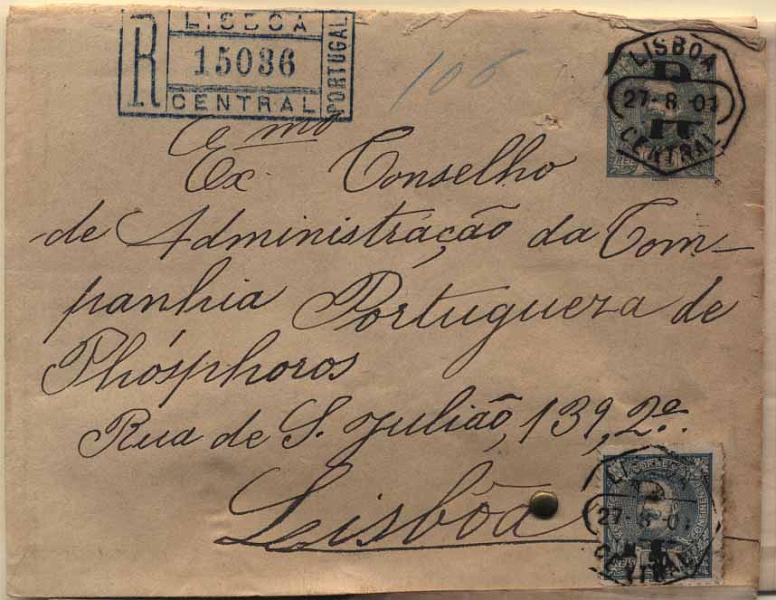 R LISBOA PORTUGAL
15036
CENTRAL
106
LISBOA
27-8-01
CENTRAL
Ex.mo Conselho
de Administração da Com-
panhia Portugueza de
Phósphoros
Rua de S. Julião, 139, 2º.
Lisbôa
LISBOA
27-8-01
CENTRAL